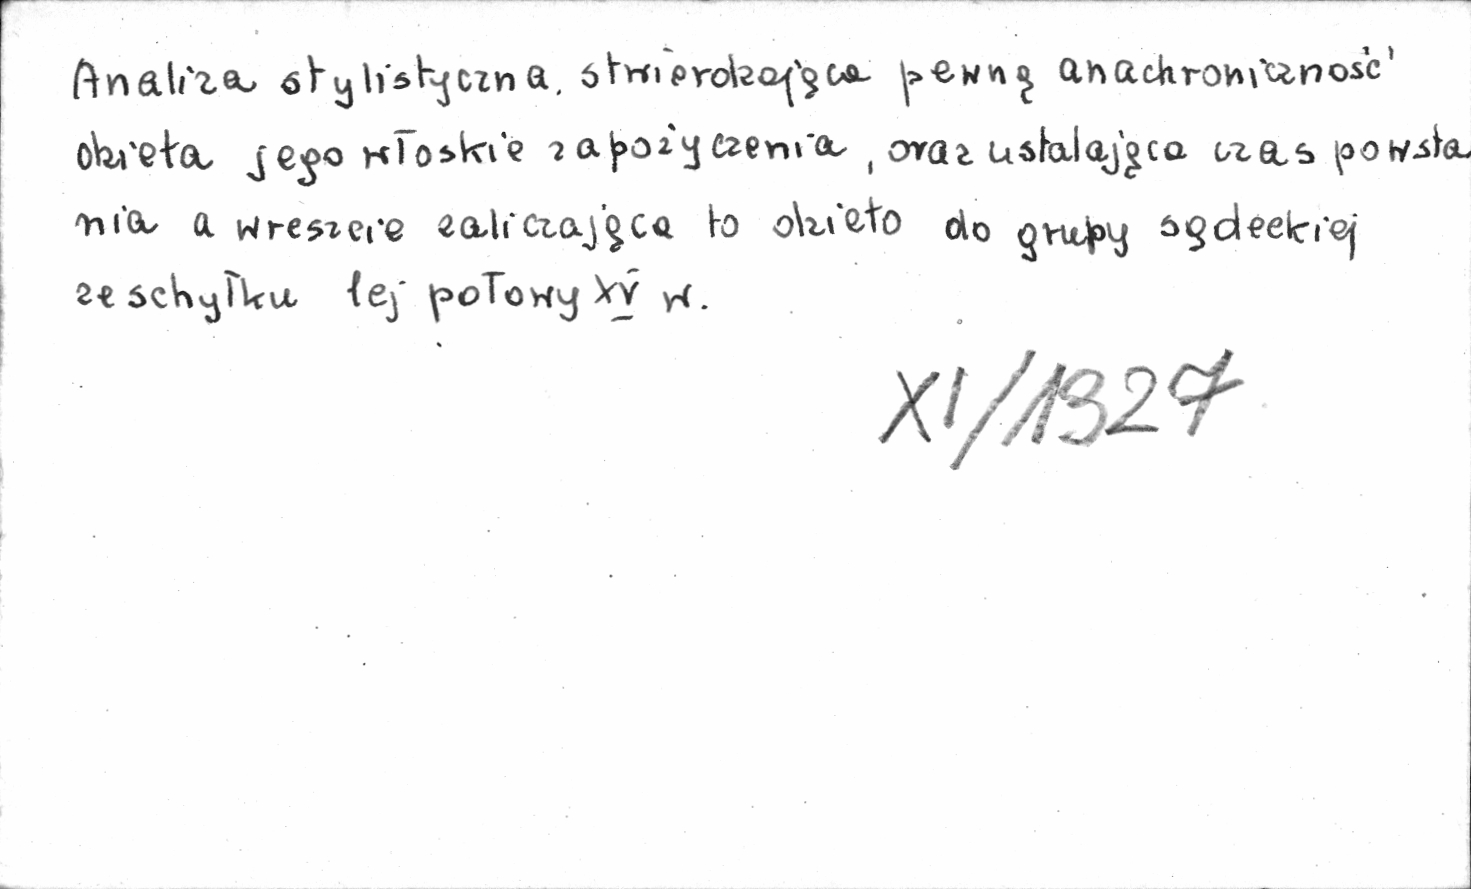 Analiza stylistyczna, stwierdzająca pewną anachroniczność
dzieła jego włoskie zapożyczenia, oraz ustalająca czas powsta
nia a wreszcie zaliczająca to dzieło do grupy sądeckiej
ze schyłku 1ej połowy XV w.
XI/1927